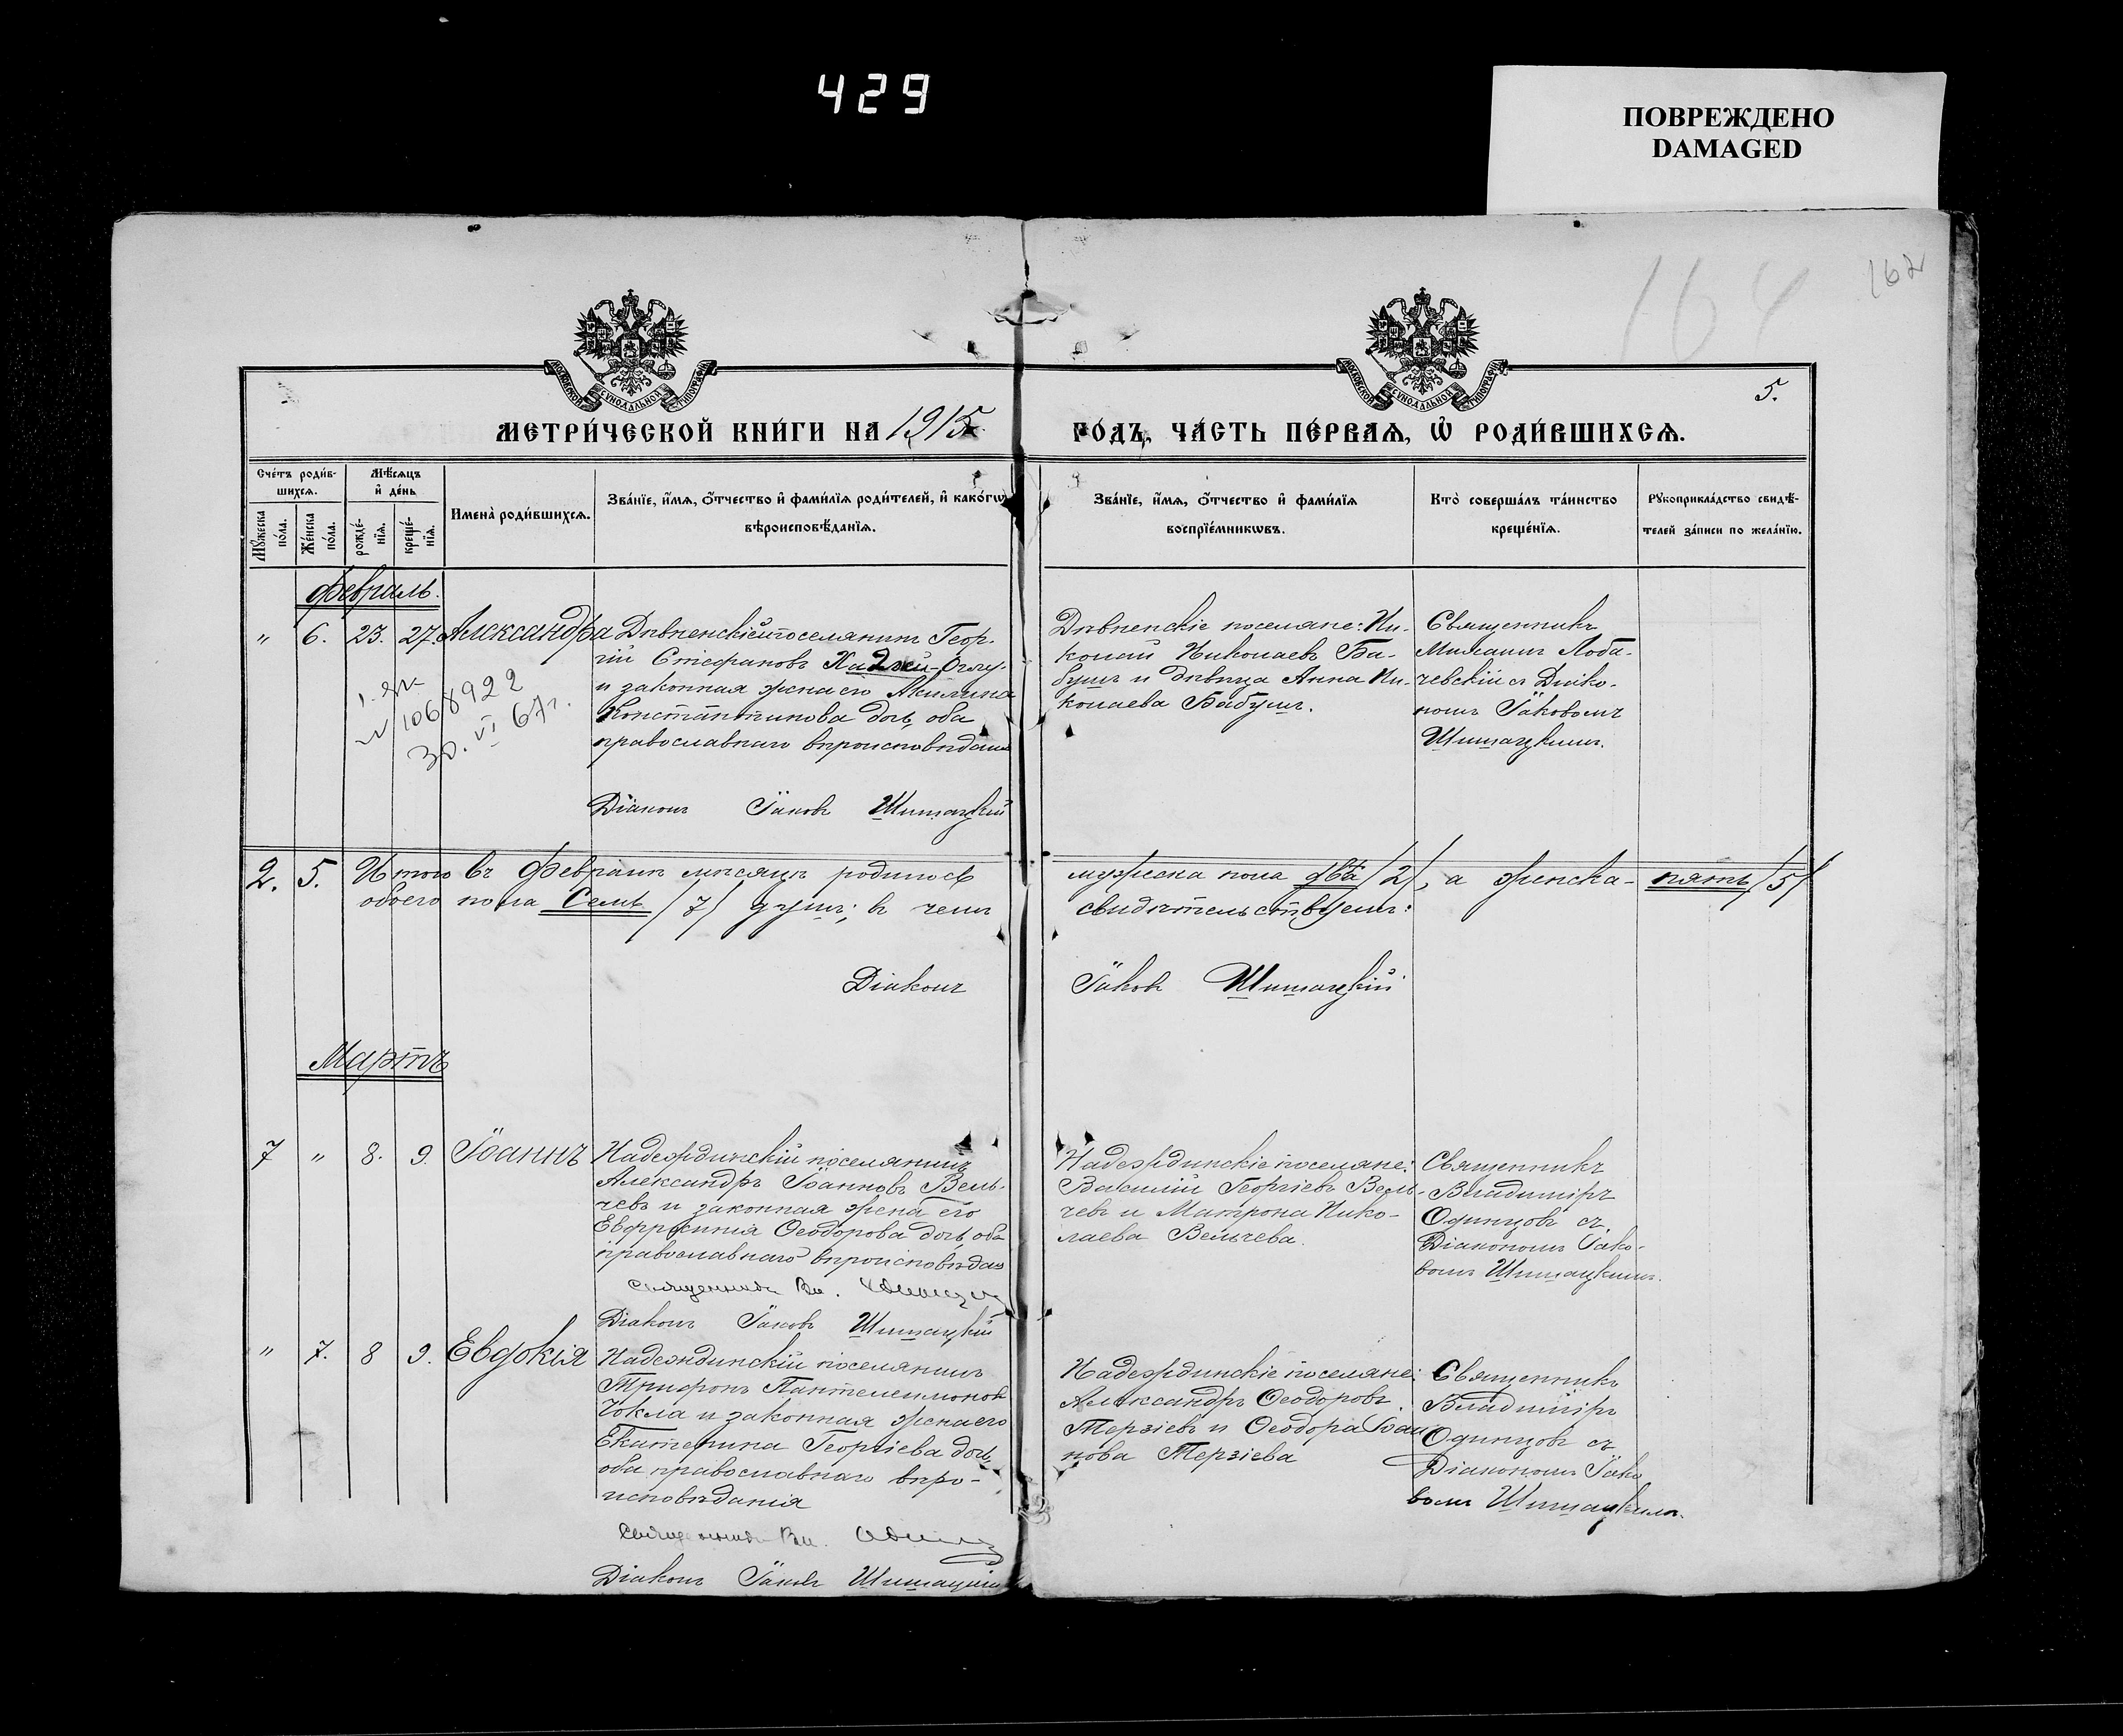 429
ПОВРЕЖДЕНО
DAMAGED
164
162
5.
МОСКОВСКОЙ СѴНОДАЛЬНОЙ ТИПОГРАФІИ
МОСКОВСКОЙ СѴНОДАЛЬНОЙ ТИПОГРАФІИ
МЕТРИ́ЧЕСКОЙ КНИ́ГИ НА 1915
ГО́ДЪ, ЧА́СТЬ ПЕ́РВАЯ, Ѡ РОДИ́ВШИХСЯ.
Сче́тъ роди́в-
шихся.
Мѣ́сяцъ
и҆ де́нь
Мꙋ́жеска по́ла.
Же́нска по́ла.
рожде́-
нїя.
креще́-
нїя.
И҆мена̀ роди́вшихся.
Зва́нїе, и҆́мя, ѻ҆́тчество и҆ фами́лїя роди́телей, и҆ како́гѡ
вѣроисповѣ́данїя.
Зва́нїе, и҆́мя, ѻ҆́тчество и҆ фами́лїя
воспрїе́мникѡвъ.
Кто̀ соверша́лъ та́инство
креще́нїя.
Рꙋкоприкла́дство свидѣ́-
телей за́писи по жела́нїю.
Февраль.
" 6. 23. 27. Александра
Дивненскій поселянинъ Геор-
гій Стефановъ Хаджи-Оглу
и законная жена его Акилина
Константинова дочь, оба
православнаго вѣроисповѣданія
Діаконъ Іаковъ Шишацкій
1068922
30. VI 67г.
Дивненскіе поселяне: Ни-
колай Николаевъ Ба-
бушъ и дѣвица Анна Ни-
колаева Бабушъ.
Священникъ
Михаилъ Лоба-
чевскій съ Діако-
номъ Іаковомъ
Шишацкимъ.
2. 5. Итого въ Февралѣ мѣсяцѣ родилось
мужеска пола два /2/, а женска - пять /5/
обоего пола Семь /7/ душъ; въ чемъ
свидѣтельствуемъ:
Діаконъ Іаковъ Шишацкій
Мартъ
7 " 8. 9. Іоаннъ
Надеждинскій поселянинъ
Александръ Іоанновъ Вель-
чевъ и законная жена его
Евфросинія Ѳеодорова дочь, оба
православнаго вѣроисповѣдан
Священникъ Вл. Одинцов
Діаконъ Іаковъ Шишацкій
Надеждинскіе поселяне:
Василій Георгіевъ Вель-
чевъ и Матрона Нико-
лаева Вельчева.
Священникъ
Владиміръ
Одинцовъ съ
Діакономъ Іако-
вомъ Шишацкимъ.
" 7. 8 9. Евдокія
Надеждинскій поселянинъ
Трифонъ Пантелеимоновъ
Чокла и законная жена его
Екатерина Георгіева дочь,
оба православнаго вѣро-
исповѣданія
Священникъ Вл. Одинц
Діаконъ Іаковъ Шишацкій
Надеждинскіе поселяне:
Александръ Ѳеодоровъ
Терзіевъ и Ѳеодора Іоан
нова Терзіева
Священникъ
Владиміръ
Одинцовъ съ
Діакономъ Іако
вомъ Шишацкимъ.